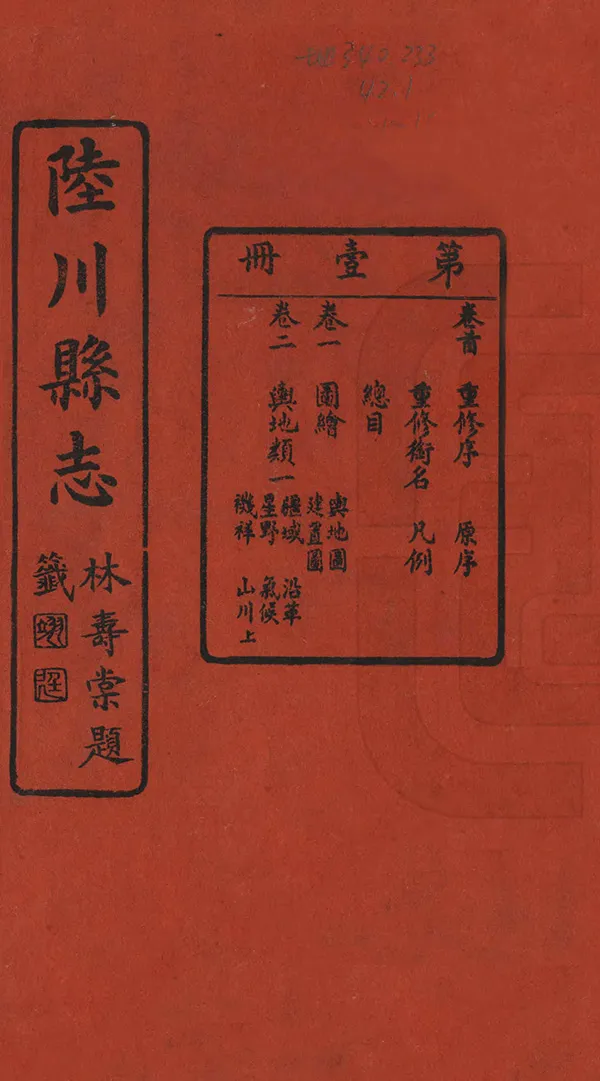 地540.233
42.1
第壹冊
卷首 重修序 原序
重修銜名 凡例
總目
卷一 圖繪 輿地圖
建置圖
卷二 輿地類一 疆域 沿革
星野 氣候
禨祥 山川上
陸川縣志
林壽棠題
籤